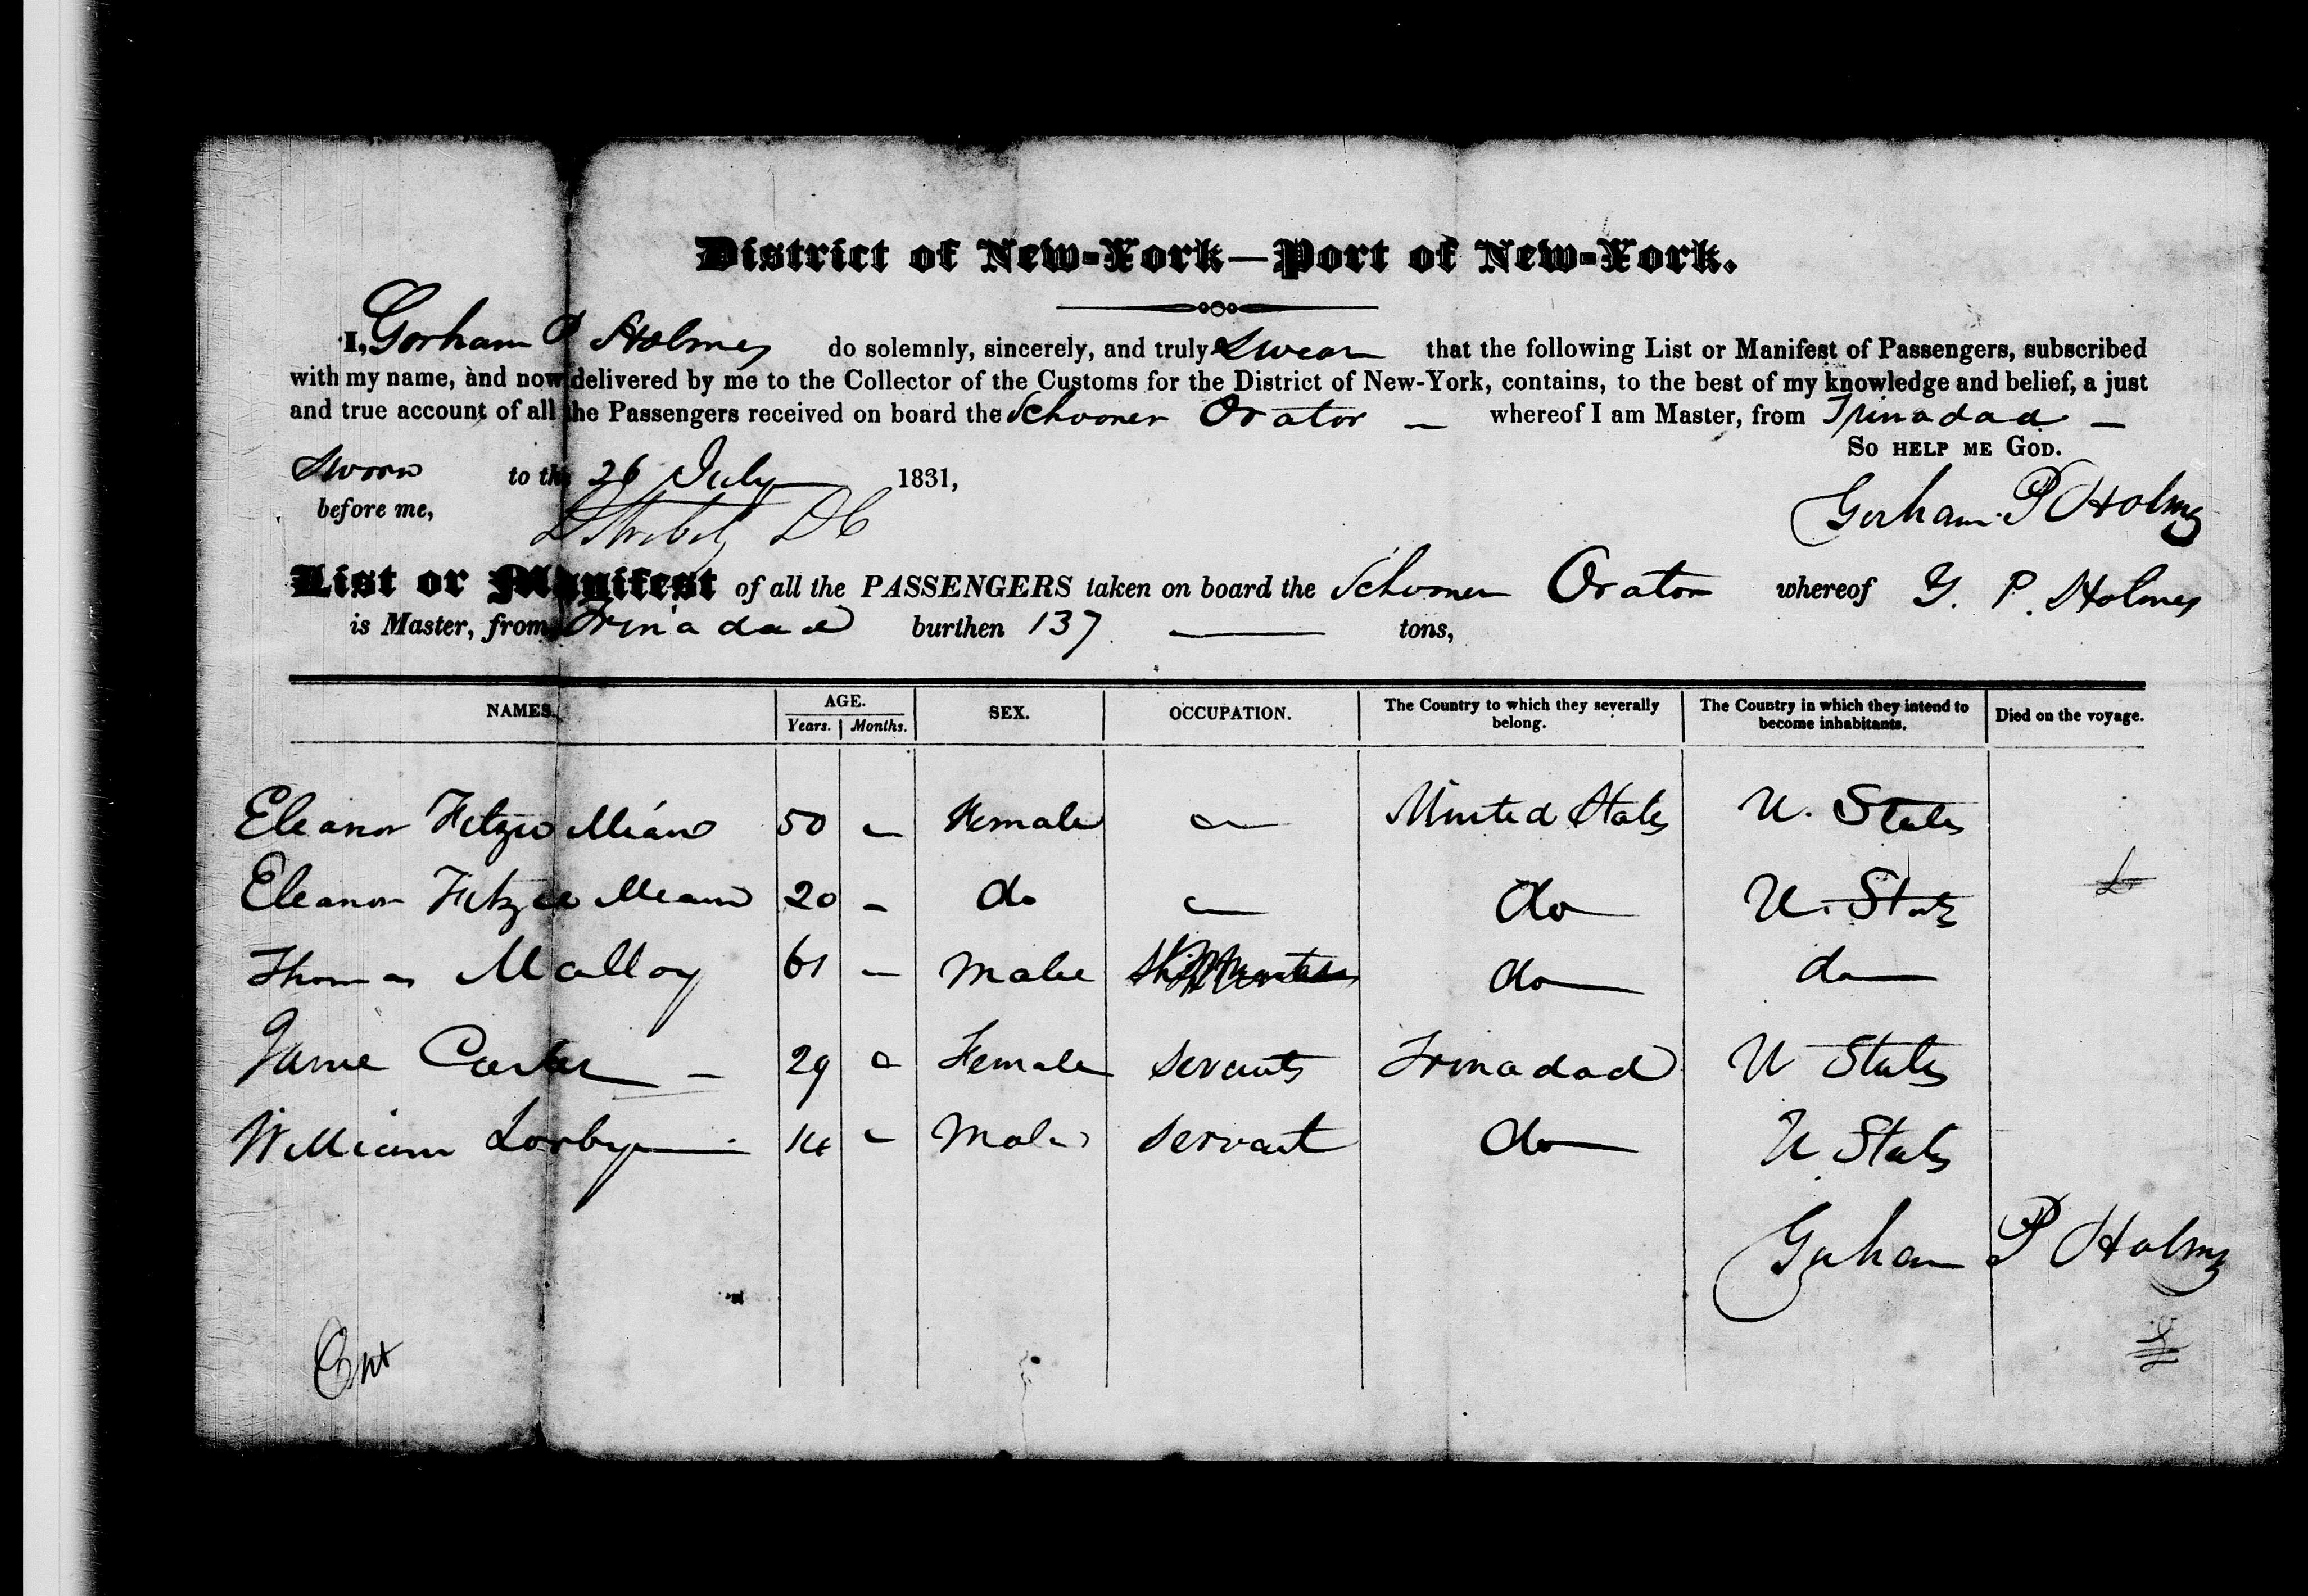 District of New-York—Port of New-York.
I, Gorham P Holmes do solemnly, sincerely, and truly Swear that the following List or Manifest of Passengers, subscribed
with my name, and now delivered by me to the Collector of the Customs for the District of New-York, contains, to the best of my knowledge and belief, a just
and true account of all the Passengers received on board the Schooner Orator — whereof I am Master, from Trinadad —
So help me God.
Sworn to the 26 July 1831,
before me,
Gorham P Holmes
List or Manifest of all the PASSENGERS taken on board the Schooner Orator whereof G. P. Holmes
is Master, from Trinadad burthen 137 — tons,
NAMES. AGE. Years. Months. SEX. OCCUPATION. The Country to which they severally belong. The Country in which they intend to become inhabitants. Died on the voyage.
Eleanor Fitzwilliam 50 – Female – United States U. States
Eleanor Fitzwilliam 20 – do – do U. States
Thomas Malloy 61 – Male do do
Jane Carter – 29 – Female Servants Trinadad U States
William Lorby 14 – Male Servant do U States
Gorham P Holmes